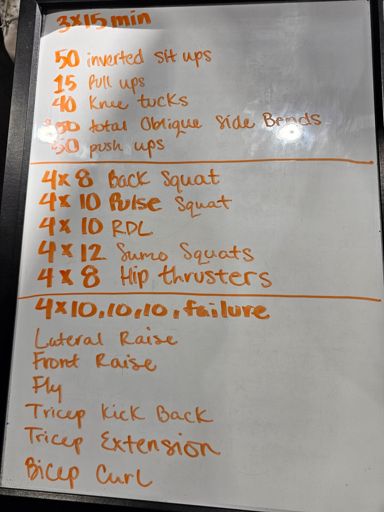 3x15 min
50 inverted sit ups
15 Pull ups
40 Knee tucks
50 total Oblique Side Bends
50 push ups
4x8 Back Squat
4x10 Pulse Squat
4x10 RDL
4x12 Sumo Squats
4x8 Hip thrusters
4x10,10,10, failure
Lateral Raise
Front Raise
Fly
Tricep Kick Back
Tricep Extension
Bicep Curl